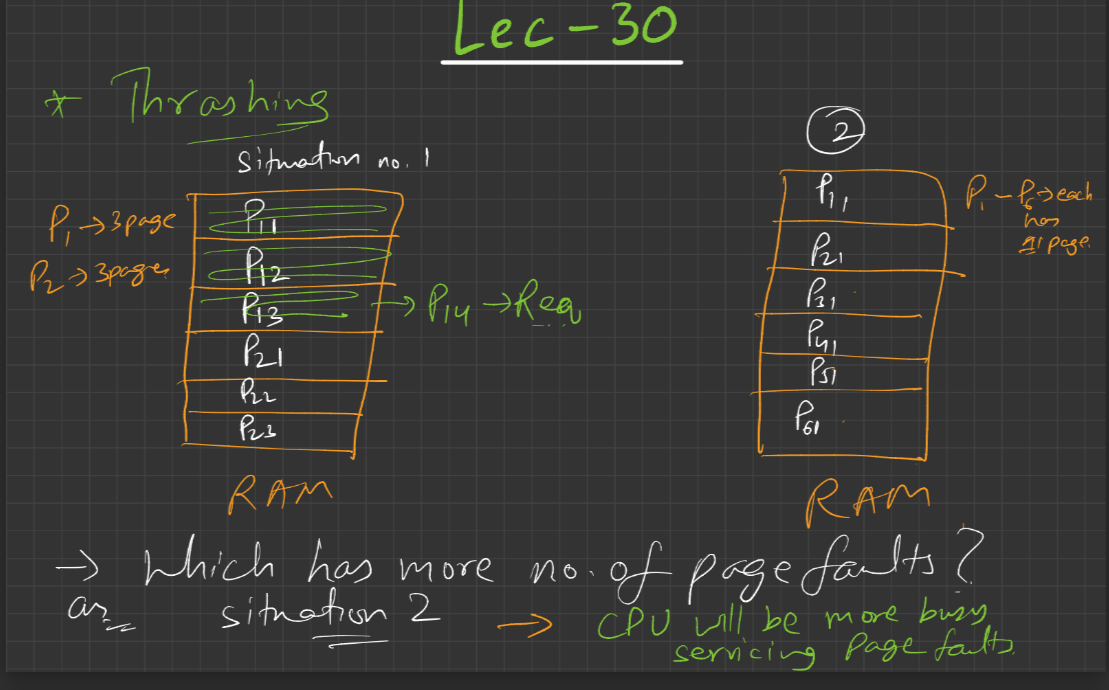 Lec-30
* Thrashing
Situation no. 1
P1 → 3 page
P2 → 3 pages
P11
P12
P13 → P14 → Req
P21
P22
P23
RAM
2
P11
P21
P31
P41
P51
P61
P1 - P6 → each
has
1 page.
RAM
→ Which has more no. of page faults?
situation 2 → CPU will be more busy
servicing Page faults.